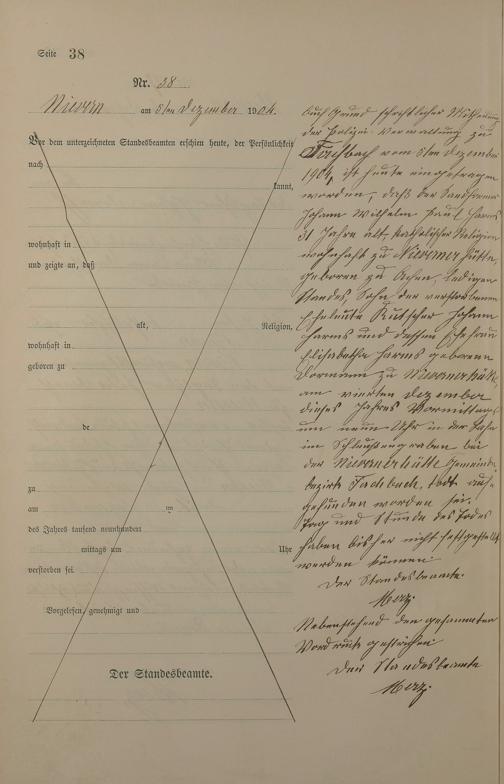 Seite 38
Nr. 38
Nievern am 5ten Dezember 1904.
Vor dem unterzeichneten Standesbeamten erschien heute, der Persönlichkeit
nach
kannt,
wohnhaft in
und zeigte an, daß
alt, Religion,
wohnhaft in
geboren zu
de
zu
am im
des Jahres tausend neunhundert
mittags um Uhr
verstorben sei.
Vorgelesen, genehmigt und
Der Standesbeamte.
Auf Grund schriftlicher Mittheilung
der Polizei-Verwaltung zu
Fachbach vom 5ten Dezember
1904, ist heute eingetragen
worden, daß der Sandformer
Johann Wilhelm Paul Harms
31 Jahre alt, katholischer Religion
wohnhaft zu Nievernerhütte,
geboren zu Achen, ledigen
Standes, Sohn der verstorbenen
Eheleute Kutscher Johann
Harms und dessen Ehefrau
Elisabetha Harms geborenen
Dormann zu Nievernerhütte,
am vierten Dezember
dieses Jahres Vormittags
um neun Uhr in der
im Schlackengraben bei
der Nievernerhütte Gemeinde-
bezirk Fachbach, todt auf-
gefunden worden sei.
Tag und Stunde des Todes
haben bisher nicht festgestellt
werden können.
Der Standesbeamte.
Merz.
Nebenstehend den gesammten
Vordruck gestrichen
Der Standesbeamte
Merz.